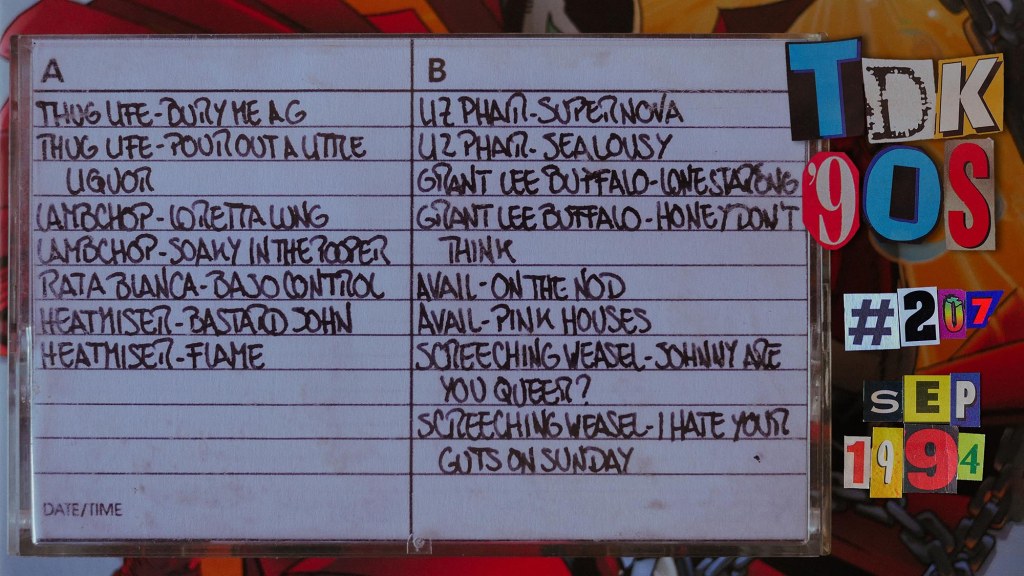 A
THUG LIFE-BURY ME A G
THUG LIFE-POUR OUT A LITTLE
LIQUOR
LAMBCHOP-LORETTA LUNG
LAMBCHOP-SOAKY IN THE POOPER
RATA BLANCA-BAJO CONTROL
HEATMISER-BASTARD JOHN
HEATMISER-FLAME
DATE/TIME
B
LIZ PHAIR-SUPERNOVA
LIZ PHAIR-JEALOUSY
GRANT LEE BUFFALO-LONE STAR SONG
GRANT LEE BUFFALO-HONEY DON'T
THINK
AVAIL-ON THE NOD
AVAIL-PINK HOUSES
SCREECHING WEASEL-JOHNNY ARE
YOU QUEER?
SCREECHING WEASEL-I HATE YOUR
GUTS ON SUNDAY
TDK
'90S
#207
SEP
1994